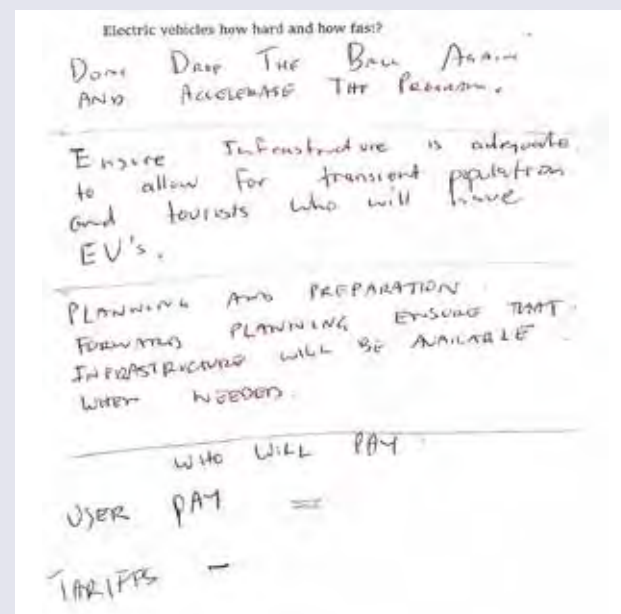 Electric vehicles how hard and how fast?
DONT DROP THE BALL AGAIN
AND ACCELERATE THE PROGRAM.
Ensure Infrastructure is adequate
to allow for transient population
and tourists who will have
EV's.
PLANNING AND PREPARATION
FORWARD PLANNING ENSURE THAT
INFRASTRUCTURE WILL BE AVAILABLE
WHEN NEEDED.
WHO WILL PAY
USER PAY =
TARIFFS -